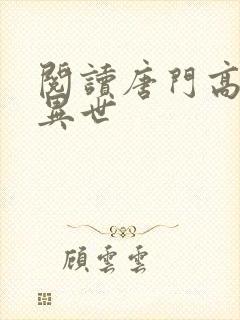 閱讀唐門高
異世
顧雲雲